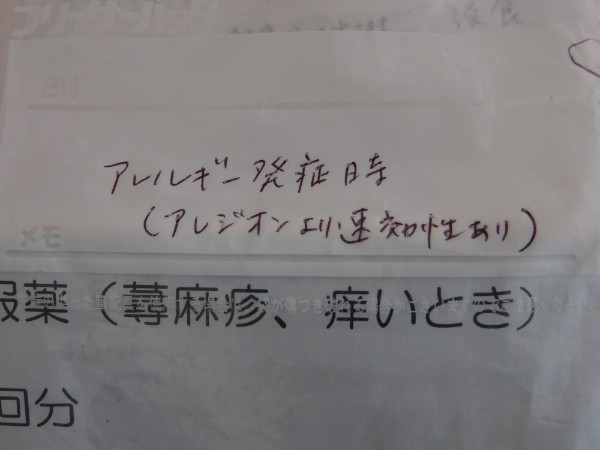 日付
アレルギー発症時
(アレジオンより速効性あり)
メモ
服薬(蕁麻疹、痒いとき)
回分